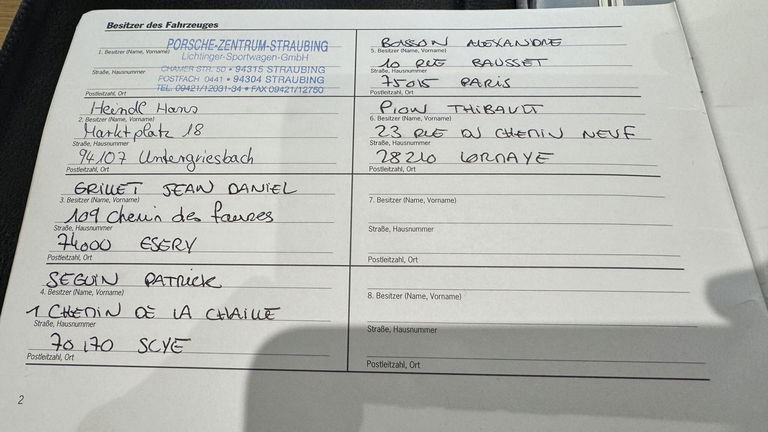 Besitzer des Fahrzeuges
PORSCHE-ZENTRUM-STRAUBING
1. Besitzer (Name, Vorname)
Lichtinger-Sportwagen-GmbH
Straße, Hausnummer
CHAMER STR. 50 • 94315 STRAUBING
POSTFACH 0441 • 94304 STRAUBING
Postleitzahl, Ort
TEL. 09421/12031-34 • FAX 09421/12750
Heindl Hans
2. Besitzer (Name, Vorname)
Marktplatz 18
Straße, Hausnummer
94107 Untergriesbach
Postleitzahl, Ort
GRILLET JEAN DANIEL
3. Besitzer (Name, Vorname)
109 chemin des
Straße, Hausnummer
74000 ESERY
Postleitzahl, Ort
SEGUIN PATRICK
4. Besitzer (Name, Vorname)
1 CHEMIN DE LA CHAILLE
Straße, Hausnummer
70170 SCYE
Postleitzahl, Ort
BOSSON ALEXANDRE
5. Besitzer (Name, Vorname)
10 RUE BAUSSET
Straße, Hausnummer
75015 PARIS
Postleitzahl, Ort
PION THIBAULT
6. Besitzer (Name, Vorname)
23 RUE DU CHEMIN NEUF
Straße, Hausnummer
28210 LORMAYE
Postleitzahl, Ort
7. Besitzer (Name, Vorname)
Straße, Hausnummer
Postleitzahl, Ort
8. Besitzer (Name, Vorname)
Straße, Hausnummer
Postleitzahl, Ort
2